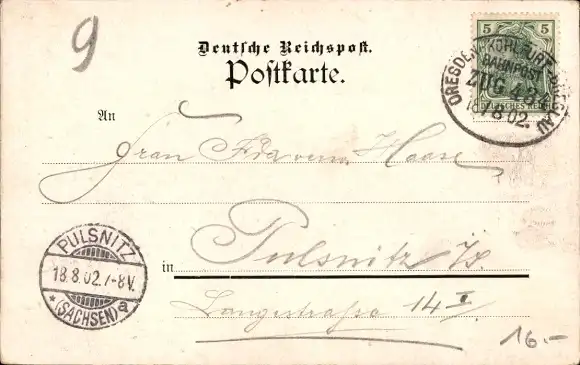 9
Deutsche Reichspost.
Postkarte.
5 5
DEUTSCHES REICH
DRESDEN-KOHLFURT-BRESLAU
BAHNPOST
ZUG 42
18/8 02.
An
Frau Haase
in Pulsnitz
Langestrasse 14 I
PULSNITZ
18.8.02.7-8V.
* (SACHSEN) a
16.-